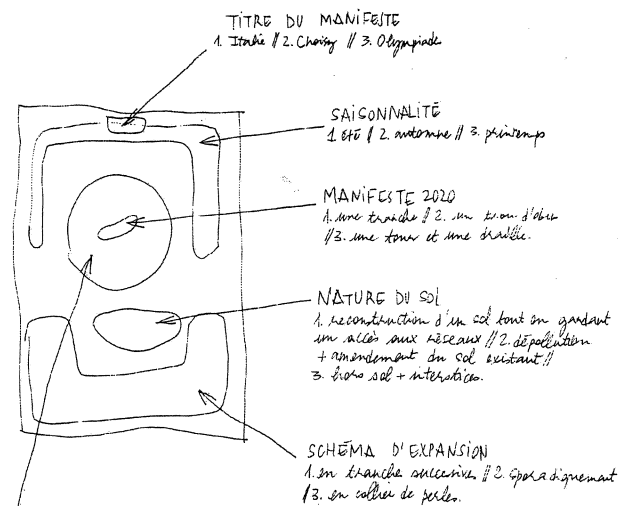 TITRE DU MANIFESTE
1. Italie // 2. Choisy // 3. Olympiade
SAISONNALITÉ
1 été // 2. automne // 3. printemps
MANIFESTE 2020
1. une tranche // 2. un trou d'obus
// 3. une tour et une
NATURE DU SOL
1. reconstruction d'un sol tout en gardant
un accès aux réseaux // 2. dépollution
+ amendement du sol existant //
3. hors sol + interstices.
SCHÉMA D'EXPANSION
1. en tranche successives // 2. sporadiquement
// 3. en collier de perles.